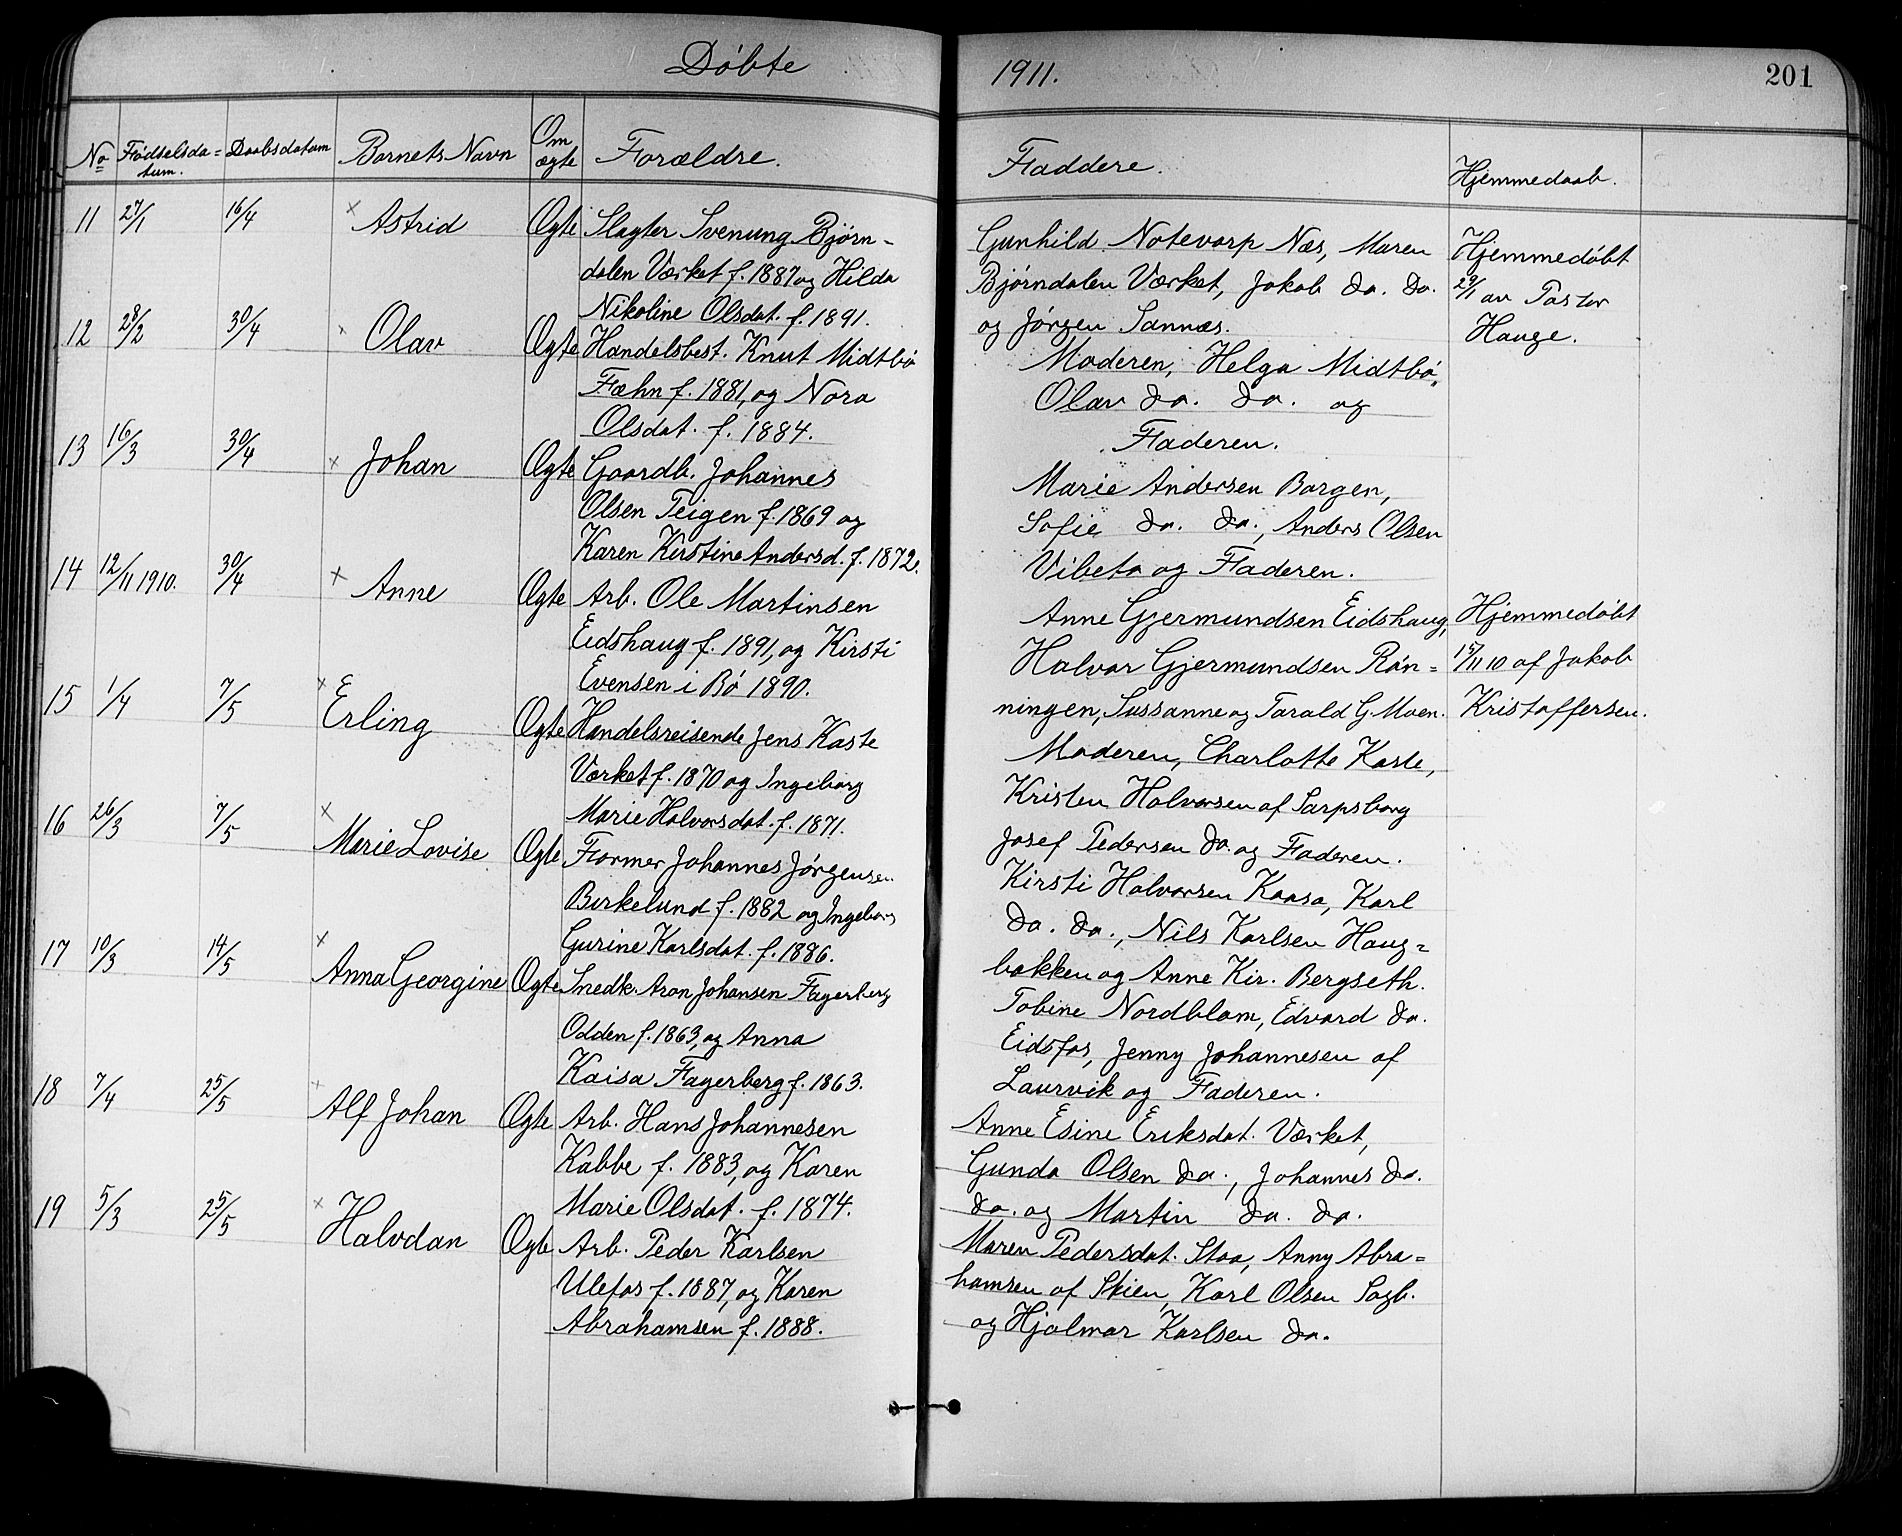 Döbte 1911. 201
No Födselsda= tum. Daabsdatum Barnets Navn Om ægte Forældre. Faddere. Hjemmedaab.
11 27/1 16/4 × Astrid Ægte Slagter Svenung Bjørn-
dalen Værket f. 1887 og Hilda
Nikoline Olsdat. f. 1891.
Gunhild Notevarp Næs, Maren
Bjørndalen Værket, Jakob do. do.
og Jörgen Sannæs.
Hjemmedöbt
29/1 av Pastor
Hauge.
12 28/2 30/4 × Olav Ægte Handelsbest. Knut Midtbö
Fæhn f. 1881, og Nora
Olsdat. f. 1884.
Moderen, Helga Midtbö,
Olav do. do. og
Faderen.
13 16/3 30/4 × Johan Ægte Gaardb. Johannes
Olsen Teigen f. 1869 og
Karen Kirstine Andersd. f. 1872.
Marie Andersen Borgen,
Sofie do. do., Anders Olsen
Vibeto og Faderen.
14 12/11 1910. 30/4 × Anne Ægte Arb. Ole Martinsen
Eidshaug f. 1891, og Kirsti
Evensen i Bö 1890.
Anne Gjermundsen Eidshaug,
Halvor Gjermundsen Rön=
ningen, Sussanne og Tarald G. Moen.
Hjemmedöbt
15/11 10 af Jakob
Kristoffersen.
15 1/4 7/5 × Erling Ægte Handelsreisende Jens Kaste
Værket f. 1870 og Ingeborg
Marie Halvorsdat. f. 1871.
Moderen, Charlotte Kaste,
Kristen Halvorsen af Sarpsborg
Josef Pedersen do. og Faderen.
16 26/3 7/5 × Marie Lovise Ægte Former Johannes Jørgensen
Birkelund f. 1882 og Ingeborg
Gurine Karlsdat. f. 1886.
Kirsti Halvorsen Kaasa, Karl
do. do., Nils Karlsen Haug=
bakken og Anne Kir. Bergseth.
17 10/3 14/5 × Anna Georgine Ægte Snedk. Aron Johansen Fagerberg
Odden f. 1863, og Anna
Kaisa Fagerberg f. 1863.
Tobine Nordblom, Edvard do.
Eidsfos, Jenny Johannesen af
Laurvik og Faderen.
18 7/4 25/5 × Alf Johan Ægte Arb. Hans Johannesen
Kabbe f. 1883, og Karen
Marie Olsdat. f. 1874.
Anne Esine Eriksdat. Værket,
Gunda Olsen do., Johannes do.
do. og Martin do. do.
19 5/3 25/5 × Halvdan Ægte Arb. Peder Karlsen
Ulefos f. 1887, og Karen
Abrahamsen f. 1888.
Maren Pedersdat. Staa, Anny Abra=
hamsen af Skien, Karl Olsen Sagb.
og Hjalmar Karlsen do.